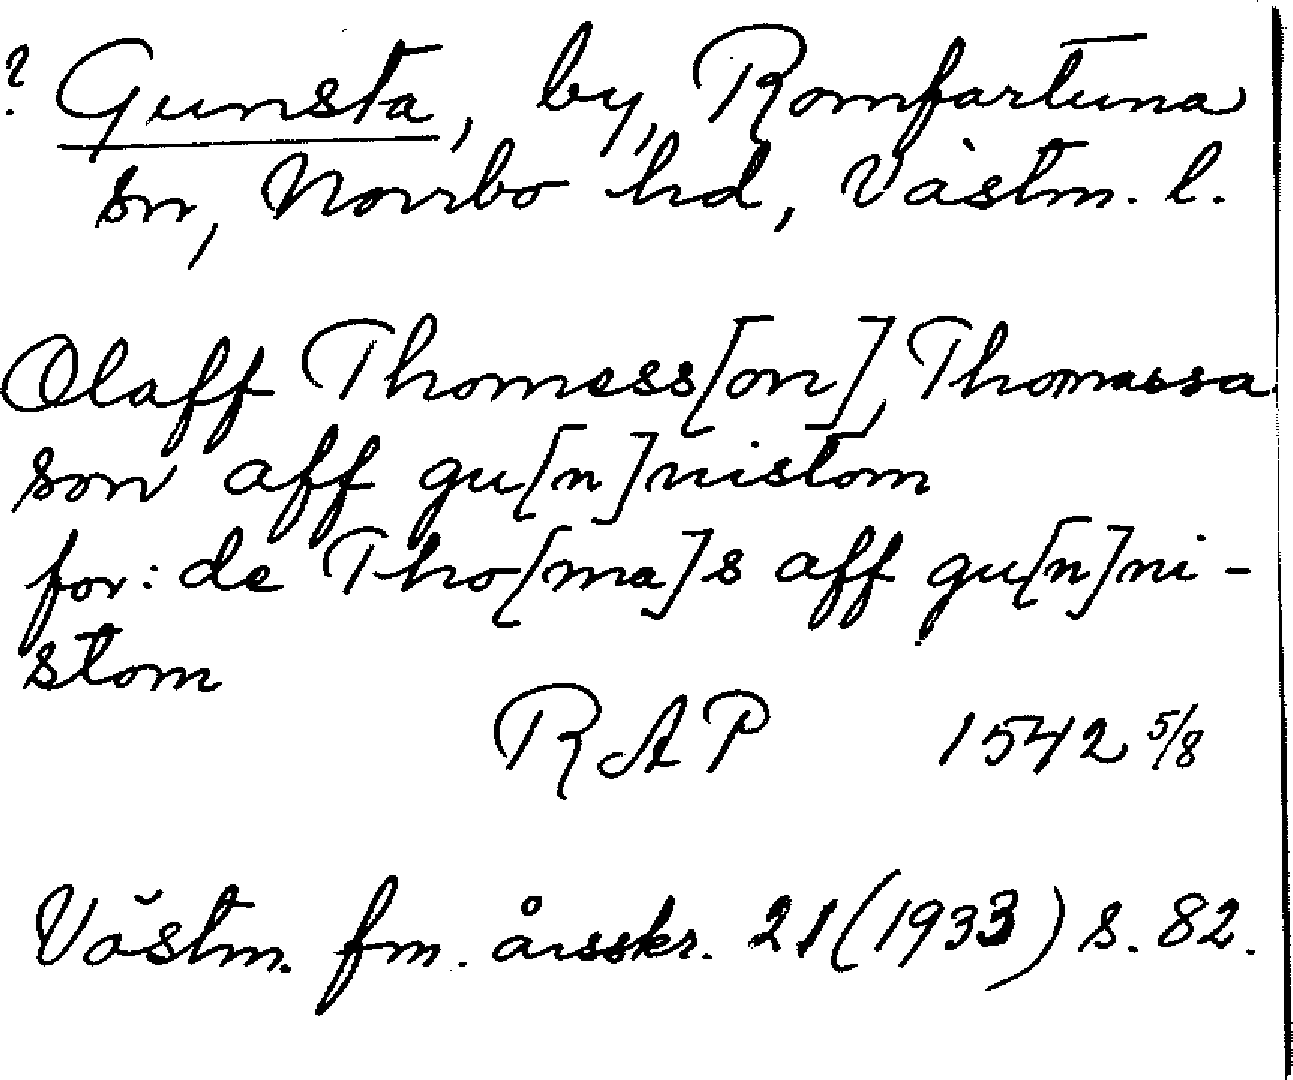 ? Gunsta, by, Romfartuna
sn, Norrbo hd, Västm. l.
Olaff Thomess[on], Thomassa
son aff gu[n]nistom
for: de Tho[ma]s aff gu[n]ni-
stom
RAP 1542 5/8
Västm. fm. årsskr. 21 (1933) S. 82.